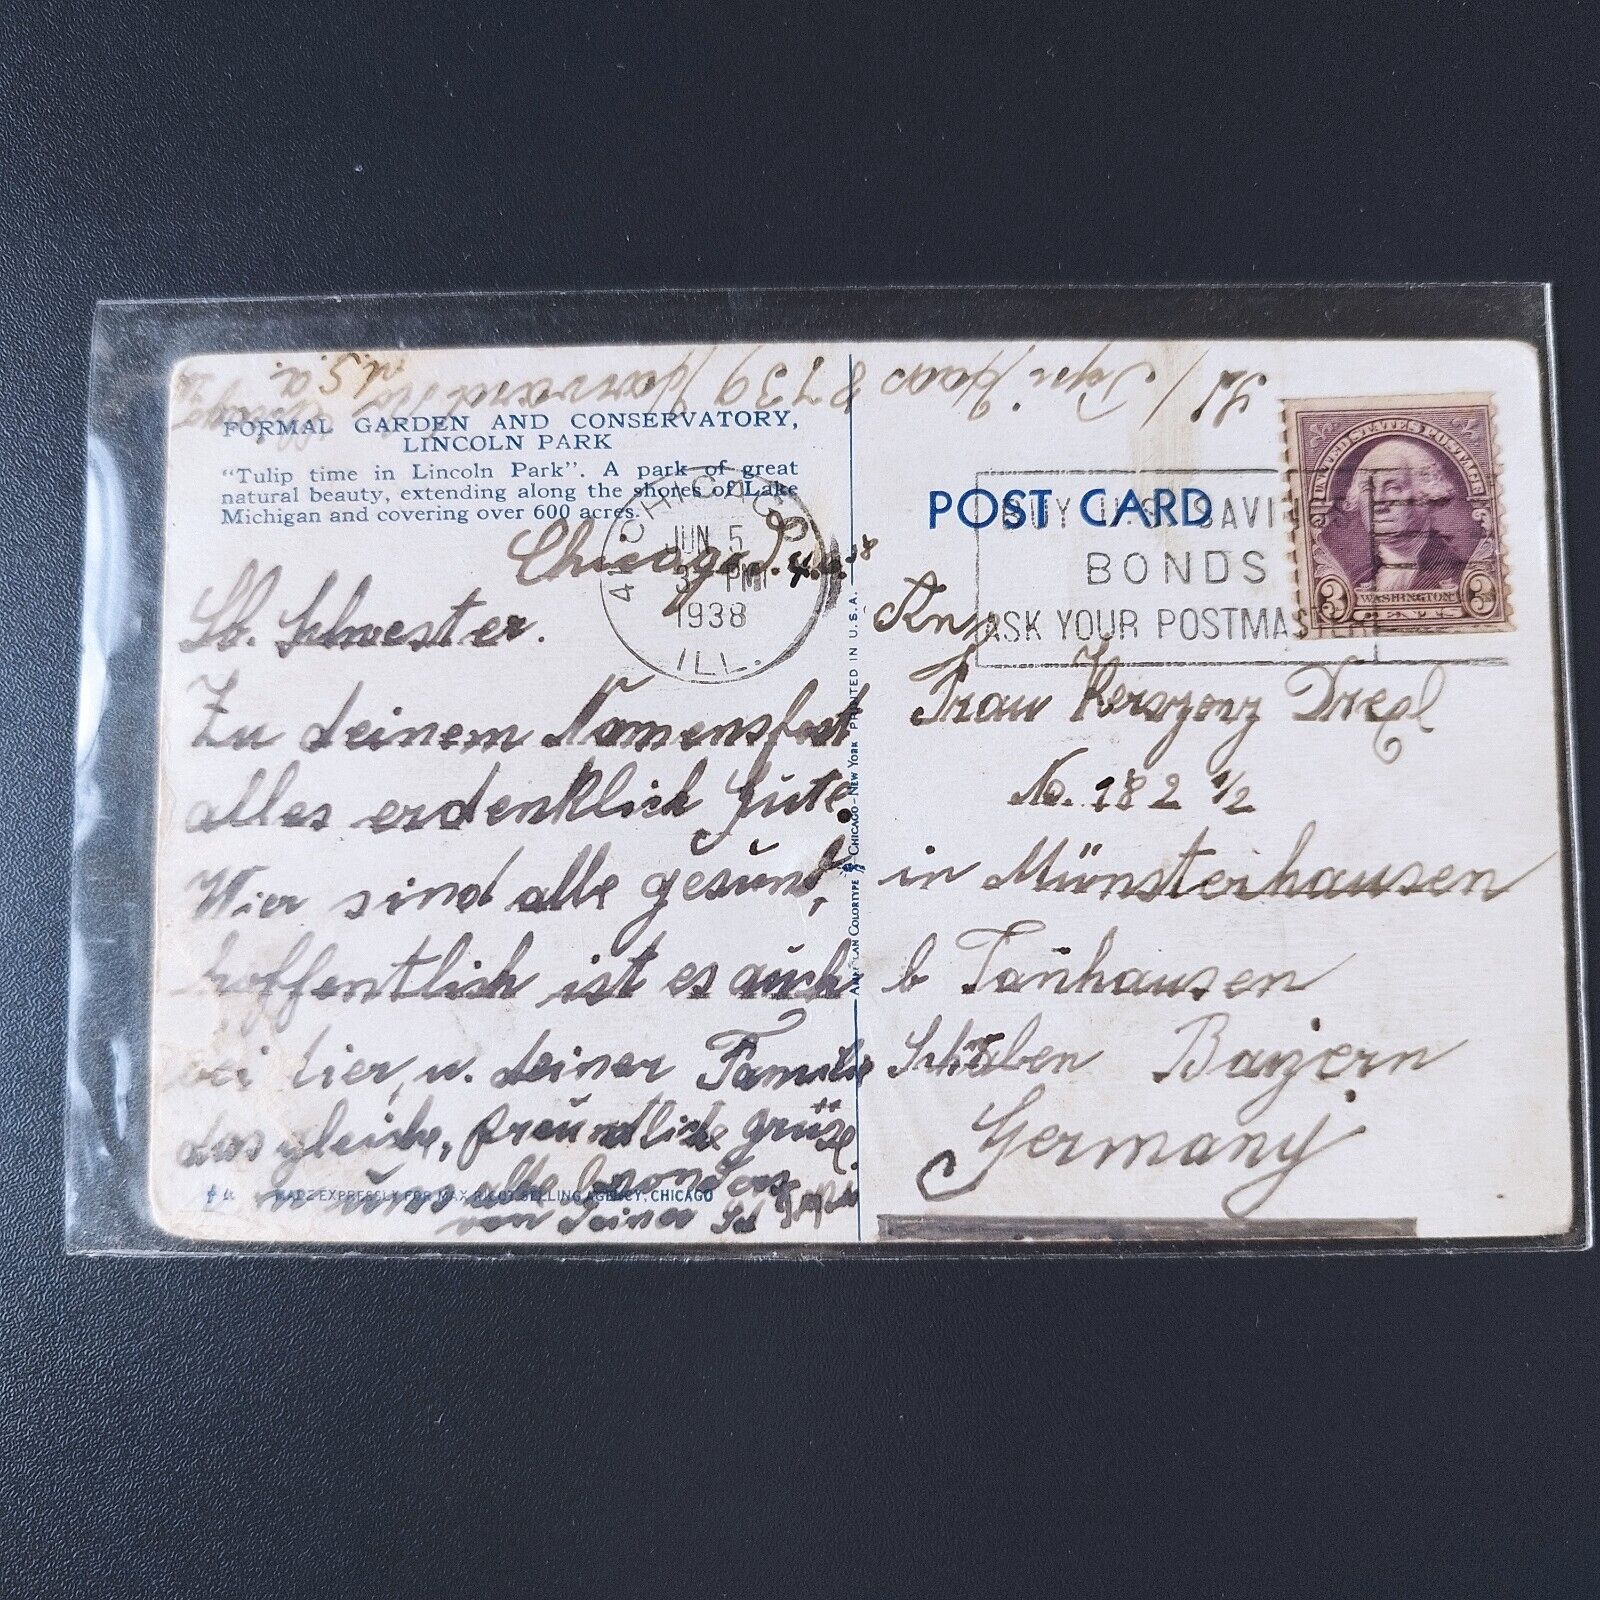 Haas 8739 Harvard
U. S. A.
FORMAL GARDEN AND CONSERVATORY,
LINCOLN PARK
"Tulip time in Lincoln Park". A park of great
natural beauty, extending along the shores of Lake
Michigan and covering over 600 acres.
CHICAGO
JUN 5
3 PM
1938
ILL.
Chicago d. 4.
Lb. Schwester.
Zu deinem Namensfest
alles erdenklich Gute.
Wier sind alle gesund,
hoffentlich ist es auch
bei dier, u. deiner Familie
das gleiche, freundliche Grüse
an uns alle besonders
von deiner
MADE EXPRESSLY FOR MAX RIGOT SELLING AGENCY, CHICAGO
AMERICAN COLORTYPE CHICAGO-NEW YORK PRINTED IN U.S.A.
POST CARD
BUY U.S. SAVINGS
BONDS
ASK YOUR POSTMASTER
UNITED STATES POSTAGE
3 WASHINGTON 3
CENTS
An
Frau Drexl
No. 182 1/2
in Münsterhausen
b Tanhausen
Schwaben Bayern
Germany